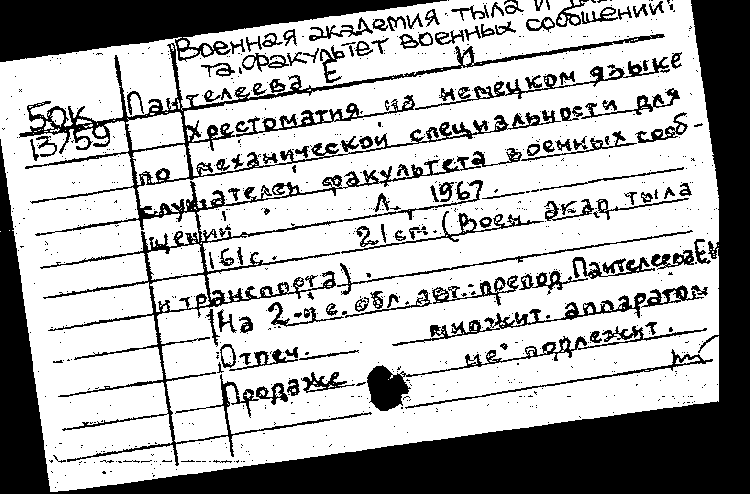 Военная академия тыла и
та, факультет военных сообщений.
50к
13/59
Пантелеева, Е И
Хрестоматия на немецком языке
по механической специальности для
слушателей факультета военных сооб-
щений. Л. 1967.
161 с. 21 см. (Воен. акад. тыла
и транспорта).
На 2-й с. обл. авт.: препод. Пантелеева Е И
Отпеч. множит. аппаратом
Продаже не подлежит.